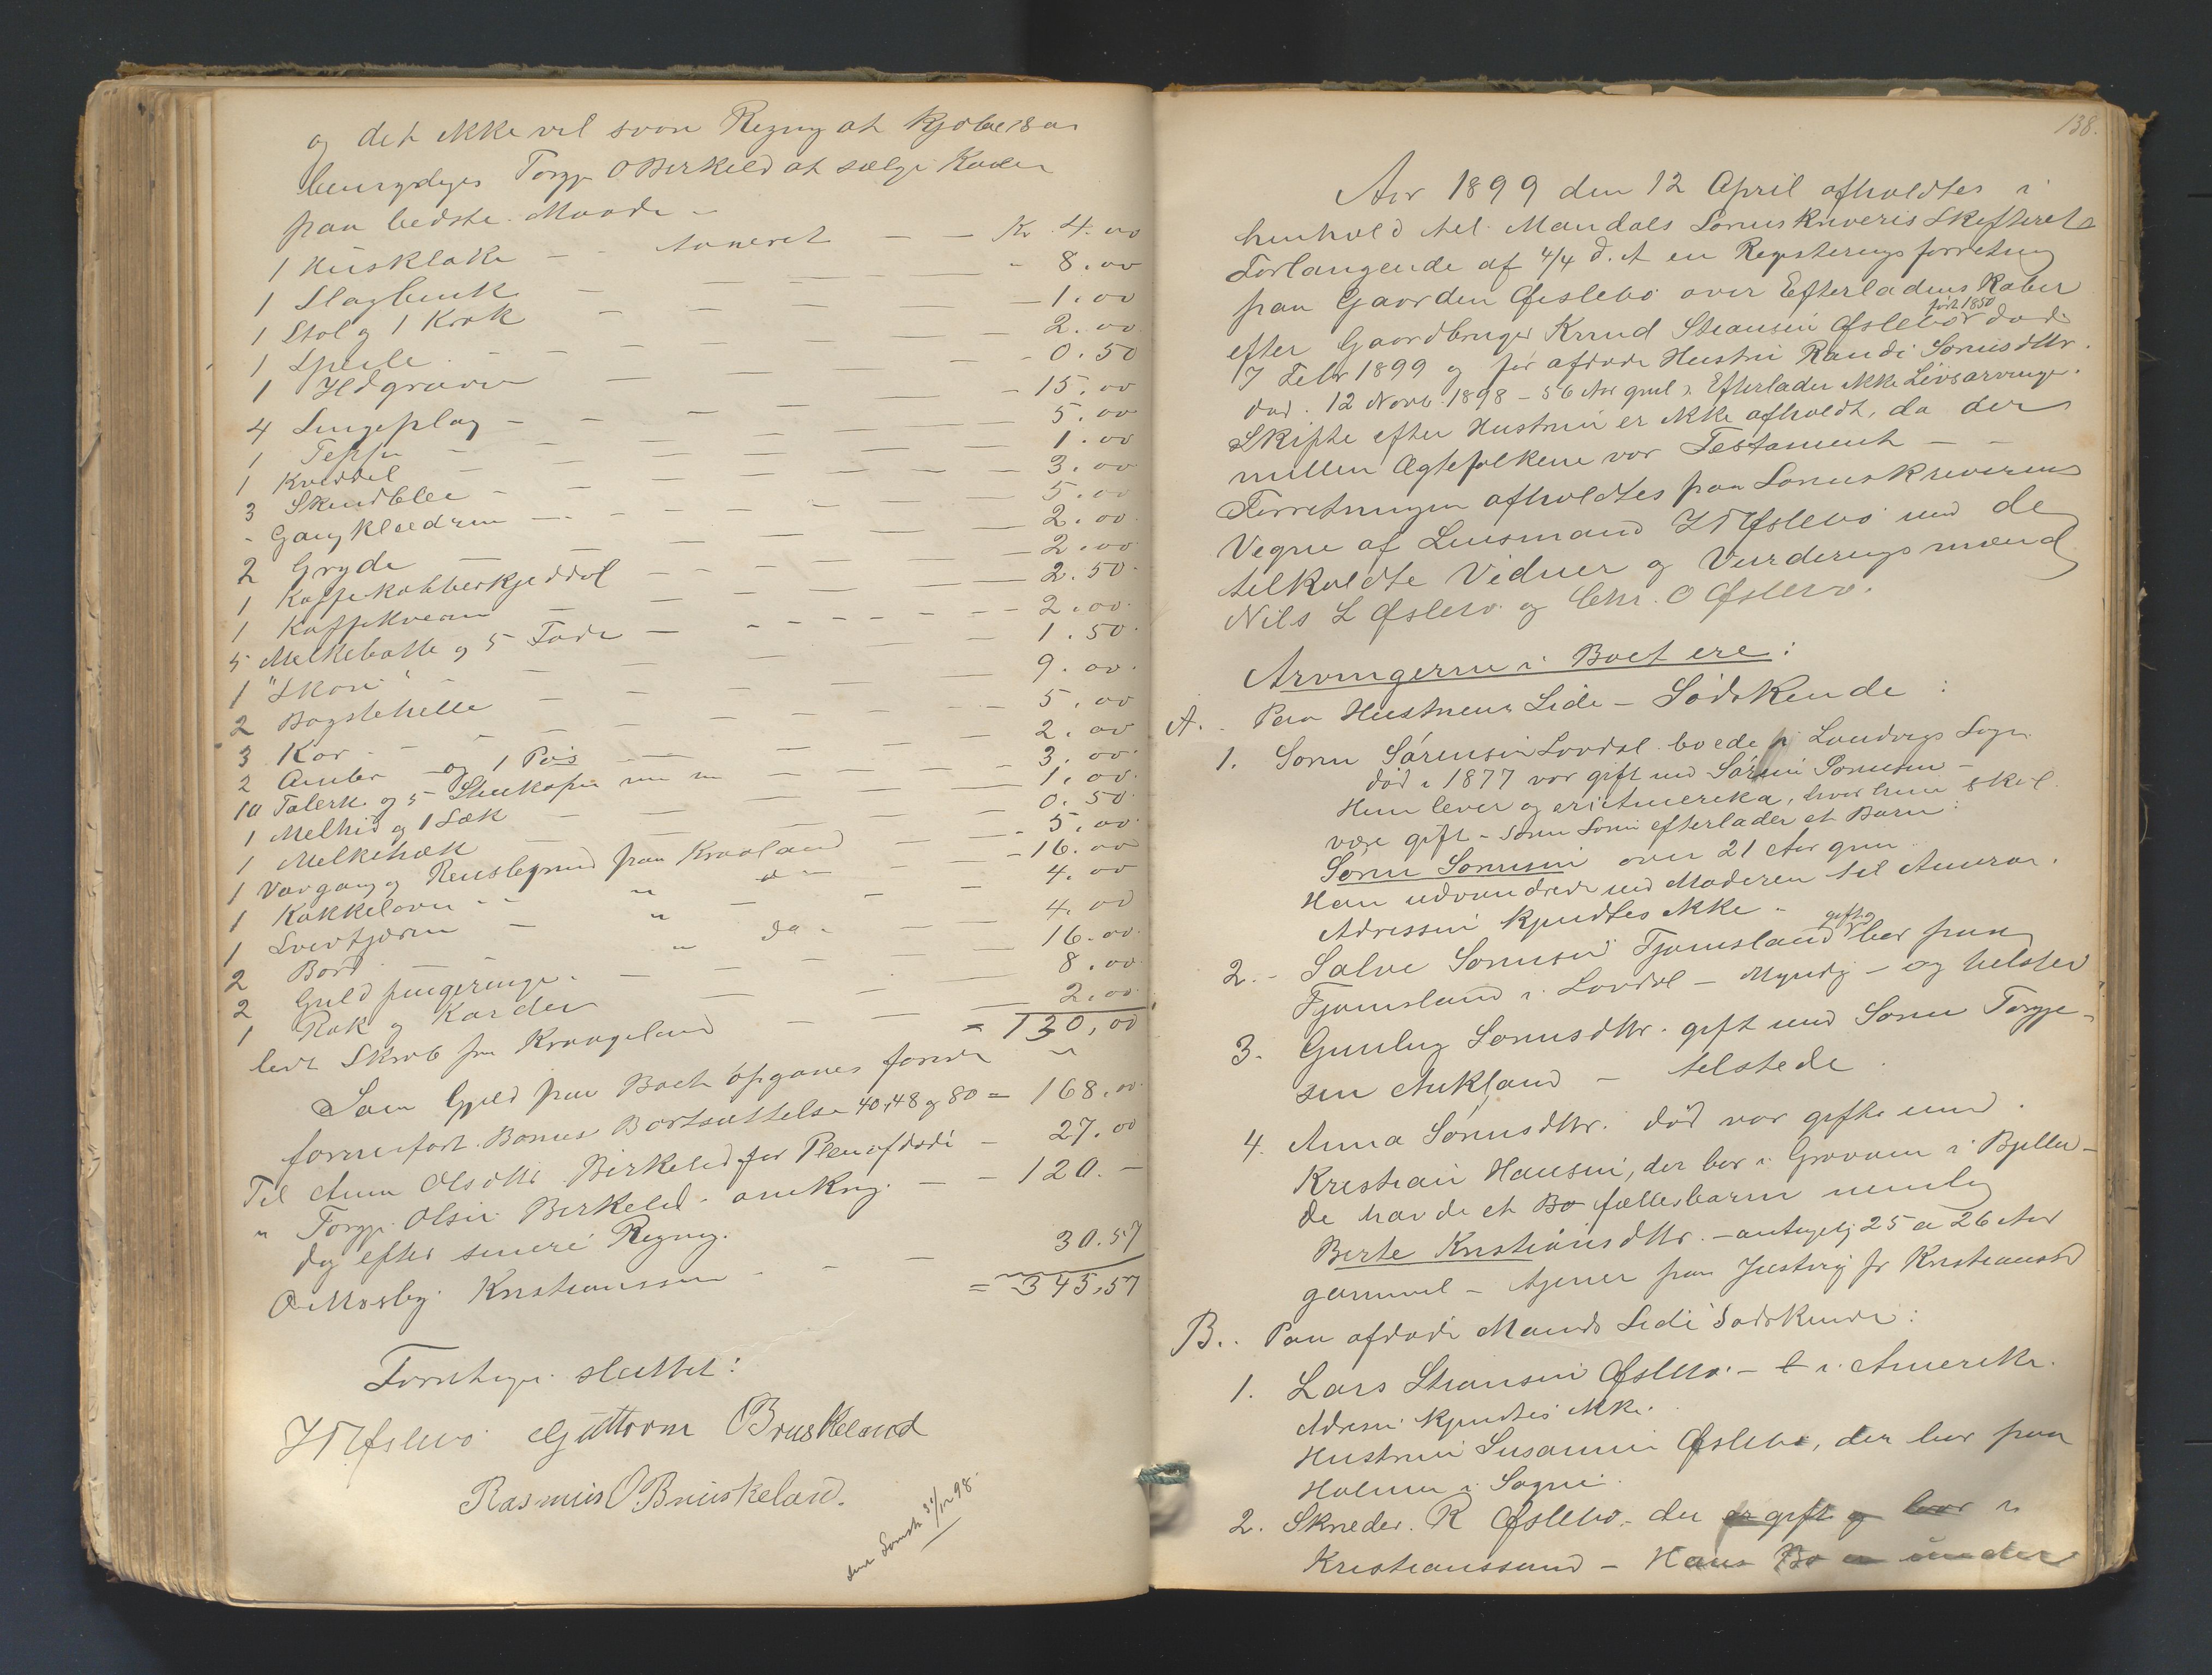 og det ikke vil svare Regning at
bemyndiges Torge O Birkeld at sælge Koden
paa bedste Maade –
1 Husklokke – – taxeret – – Kr. 4.00
1 Slagbenk – – – – " 8.00
1 Stol og 1 Krak – – – 1.00
1 Speile – – – – 2.00
1 Ildgraver – – – – 0.50
4 Sengeplag – – – – 15.00
1 Teppe – – – – 5.00
1 Kviddel – – – – 1.00
3 Skindfler – – – – 3.00
" Gangklædrene – – – 5.00
2 Gryde – – – – 2.00
1 Kaffekobberkjeddel – – – 2.00
1 Kaffekvern – – – – 2.50
5 Melkebotte og 5 Fade – – – 2.00
1 "Skori" – – – – 1.50
2 Bagstehelle – – – – 9.00
3 Kar – – – – 5.00
2 Amber – og 1 Pøs – – 2.00
10 Talerk. og 5 m m – – 3.00
1 Melhid og 1 Sæk – – – 1.00
1 Melkehæk – – – – 0.50
1 Vævgang og paa Kraaland – 5.00
1 Kakkelovn – – " do – – 16.00
1 – " – – 4.00
2 Bord – " do – – 4.00
2 Guld fingeringe – – – 16.00
1 Rok og Karder – – – 8.00
Skrab fra Kraageland – – 2.00
= 130,00
Som Gjeld paa Boet opgaves foruden
forrenfort. Barnets Bortsættelse 40,48 og 80 = 168.00
Til Anna Olsdtr. Birkeld for Pleie afdøde – 27.00
" Torge Olsen Birkeld – omkring – – 120. –
dog efter senere Regning.
O. Mosby. Kristianssan – – – 30.57
= 345,57
Forretningen sluttet:
J T Øslebø Guttorm O Bruskeland
Rasmus O Bruskeland.
31/12 98.
138.
Aar 1899 den 12 April afholdtes i
henhold til Mandals Sorenskriveris Skifterets
Forlangende af 4/4 d. A en Registeringsforretning
paa Gaarden Øislebø over Efterladenskaber
født 1850
efter Gaardbruger Knud Stiansen Øslebø død
7 Febr 1899 og før afdøde Hustru Randi Sørensdtr.
død. 12 Novb. 1898 – 56 Aar gml. Efterlader ikke Livsarvinge.
Skifte efter Hustruen er ikke afholdt, da der
mellem Ægtefolkene var Testament – –
Forretningen afholdtes paa Sorenskriverens
Vegne af Lensmand J T Øslebø med de
tilkaldte Vidner og Vurderingsmænd
Nils L Øslebø og Chr. O Øslebø.
Arvingerne i Boet ere:
A. Paa Hustruens Side – Sødskende:
1. Sørn Sørensen Lovdal boede i Landvigs Sogn
død i 1877 var gift med Sørensen –
Hun lever og er i Amerika, hvor hun skal
være gift – Søren efterlader et Barn:
Sørn Sørnsen over 21 Aar gml.
Han udvandrede med Moderen til Amerika.
Adressen kjendtes ikke –
gift og
2. – Salve Sørnsen Fjomsland bor paa
Fjomsland i Lovdal – Myndig – og tilsted
3. Gunlug Sørnsdtr. gift med Sørn Torge-
sen Aukland – tilstede
4. Anna Sørnsdtr. død var gift med
Kristian Hansen, der bor i Grovane i Bjelland
de havde et Bo fællesbarn nemlig
Berte Kristiansdtr. – antagelig 25 a 26 Aar
gammel – tjener paa Justvig pr Kristianssd
B.. Paa afdøde Mands Side Sødskende:
1. Lars Stiansen Øslebø – i Amerika.
Adressen kjendtes ikke.
Hustruen Susanne Øslebø, der bor paa
Holmen i Sogne.
2. Skræder. R Øslebø – der er gift og bor i
Kristianssand – Hans Bo er under